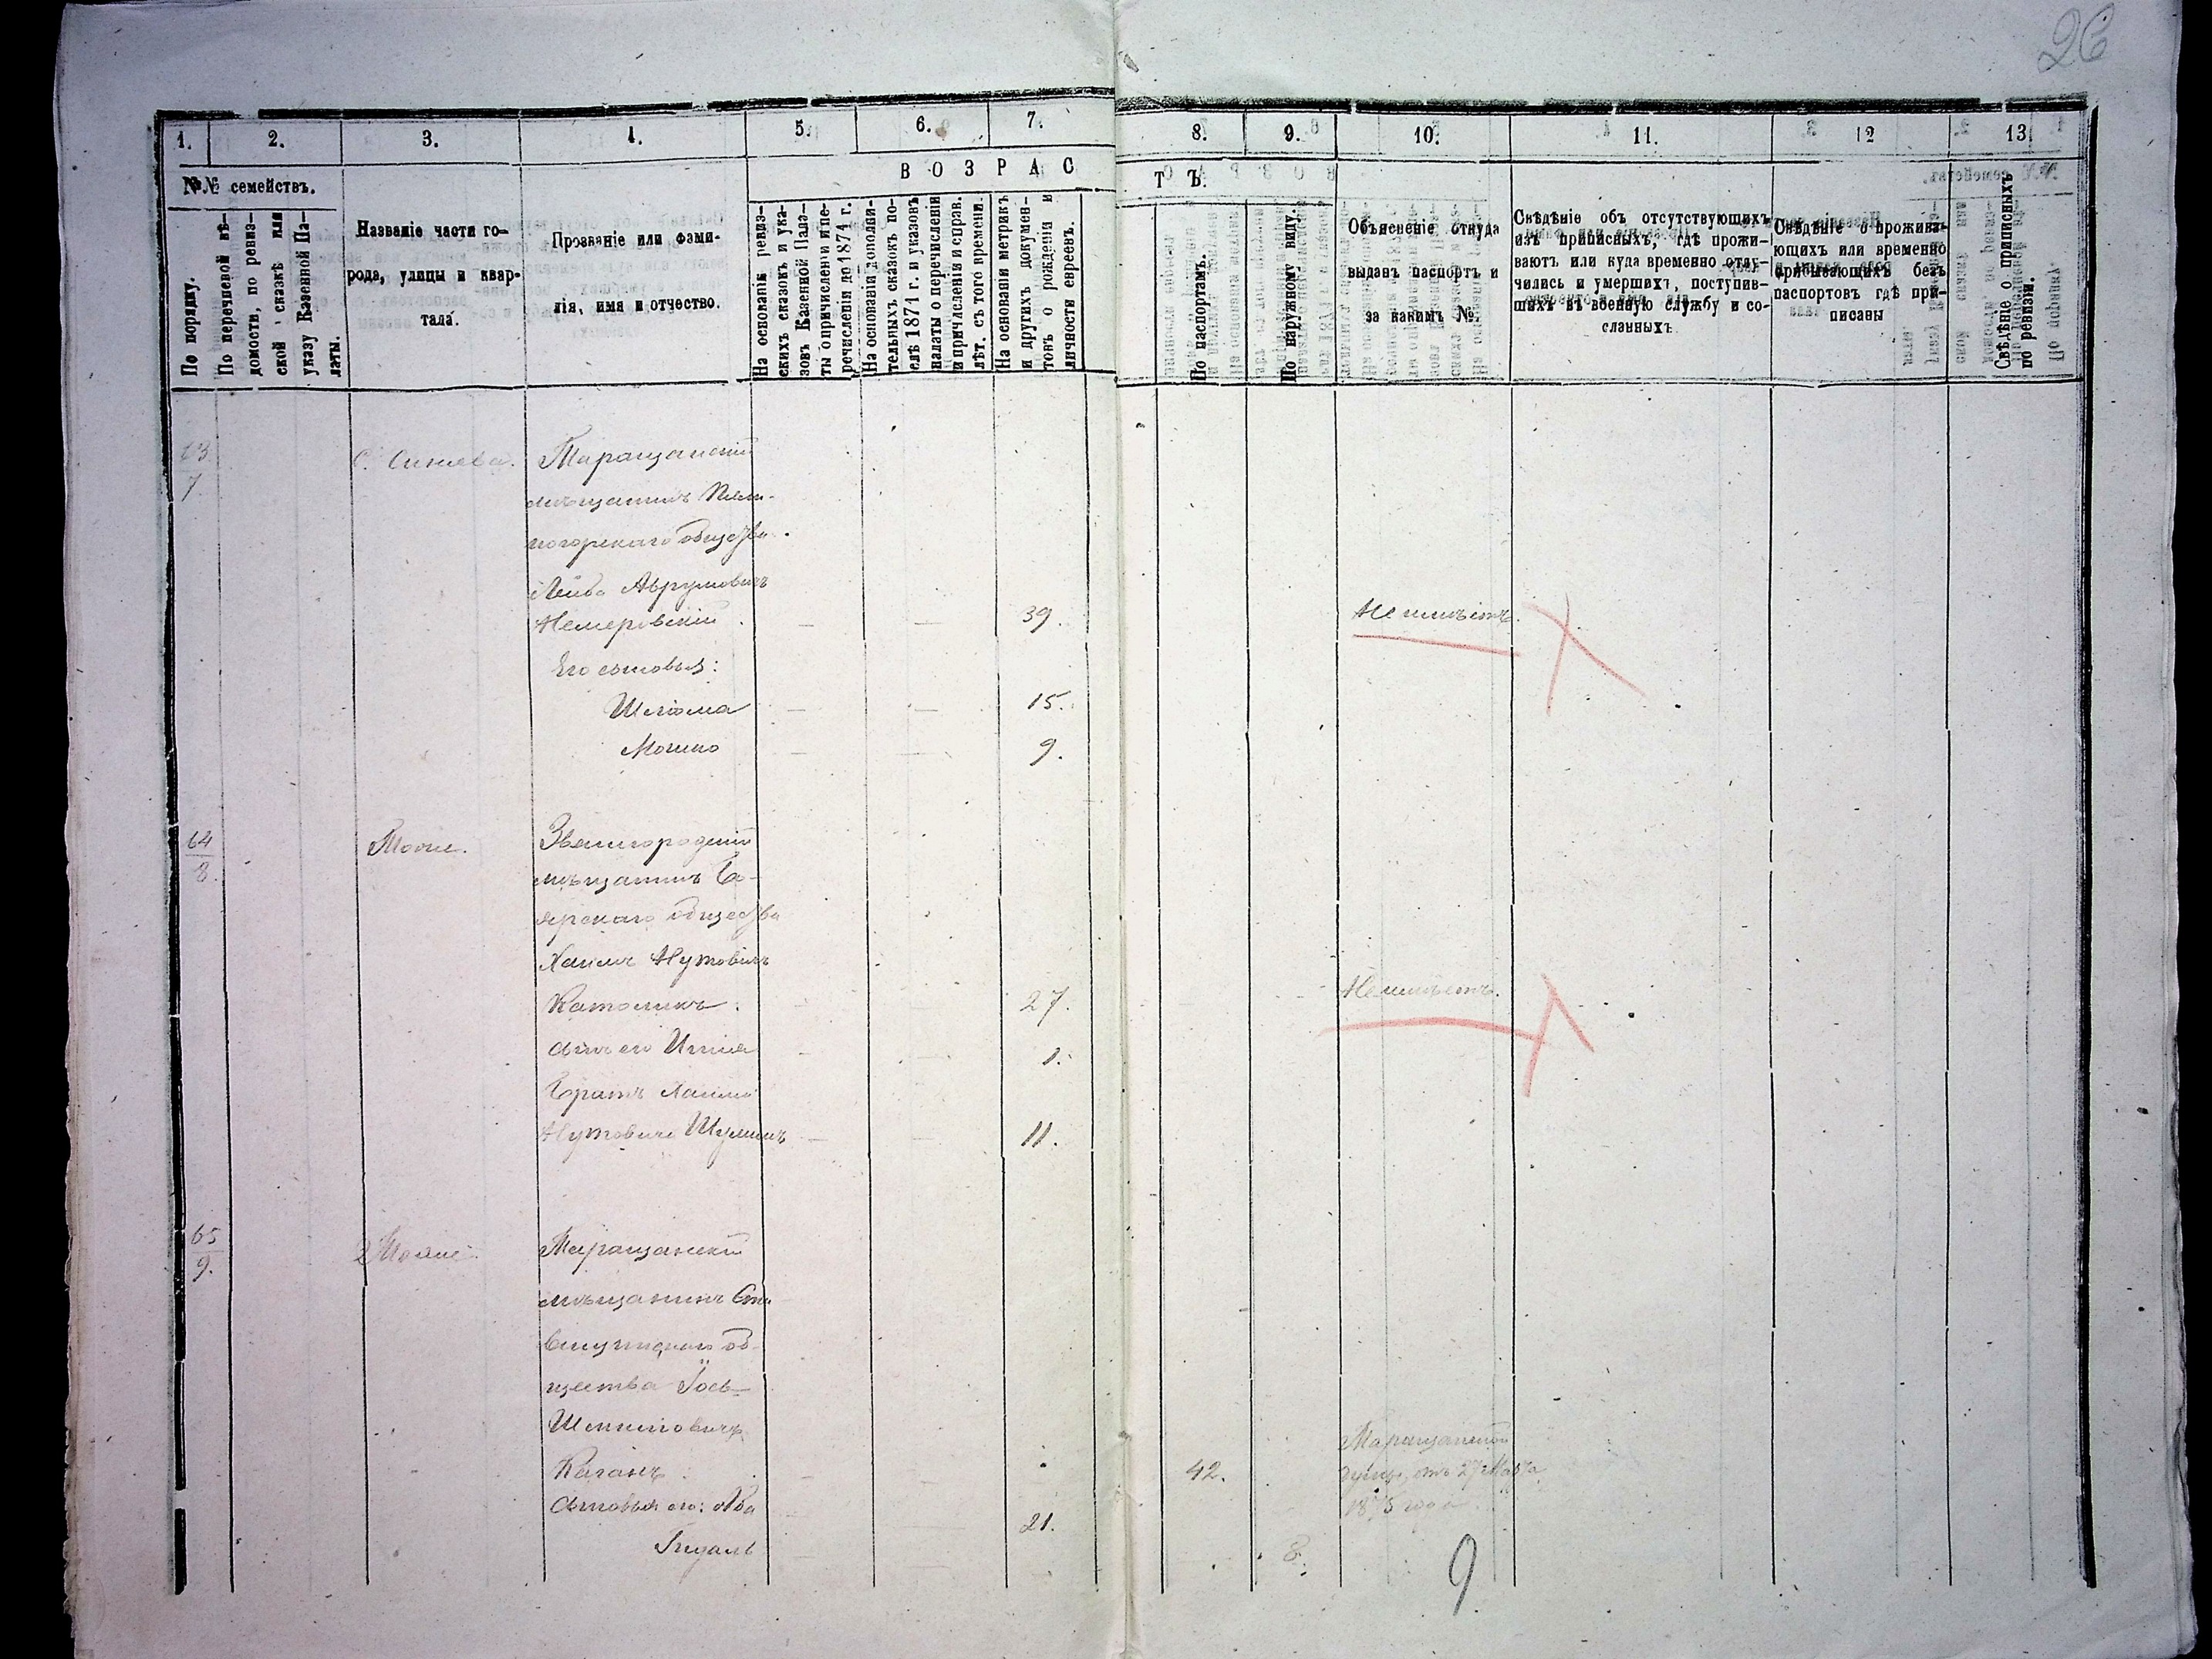 26
1. 2. 3. 4. 5. 6. 7. 8. 9. 10. 11. 12 13.
№№ семействъ.
По порядку.
По перечневой вѣ-
домости, по ревиз-
ской сказкѣ или
указу Казенной Па-
латы.
Названіе части го-
рода, улицы и квар-
тала.
Прозваніе или фами-
лія, имя и отчество.
ВОЗРАСТЪ.
На основаніи ревиз-
скихъ сказокъ и ука-
зовъ Казенной Пала-
ты о причисленіи и пе-
речисленіи до 1874 г.
На основаніи дополни-
тельныхъ сказокъ по-
слѣ 1874 г. и указовъ
палаты о перечисленіи
и причисленіи и справ.
лѣт. съ того времени.
На основаніи метрикъ
и другихъ докумен-
товъ о рожденіи и
личности евреевъ.
По паспортамъ.
По наружному виду.
Объясненіе откуда
выданъ паспортъ и
за какимъ №.
Свѣдѣніе объ отсутствующихъ
изъ приписныхъ, гдѣ прожи-
ваютъ или куда временно отлу-
чились и умершихъ, поступив-
шихъ въ военную службу и со-
сланныхъ.
Свѣдѣніе о прожива-
ющихъ или временно
прибывающихъ безъ
паспортовъ гдѣ при-
писаны
Свѣдѣніе о приписныхъ
по ревизіи.
63
7.
С.
Таращанскій
мѣщанинъ
общества.
Лейба Аврумовичъ
Немеровскій. 39. Не имѣетъ.
Его сыновья:
Шлiома 15.
Мошко 9.
64
8.
Тоже.
Звенигородскій
мѣщанинъ Бо-
ярскаго общества
Хаимъ Нутовичъ
Католикъ. 27. Не имѣетъ.
сынъ его 1.
Братъ Хаима
Нутовича 11.
65
9.
Тоже.
Таращанскій
мѣщанинъ Ста-
вищскаго об-
щества Iось
Каганъ. 42. Таращанской
думы, отъ 27 Марта
187 года
Сыновья его: Аба 21.
Гидаль 8.
9